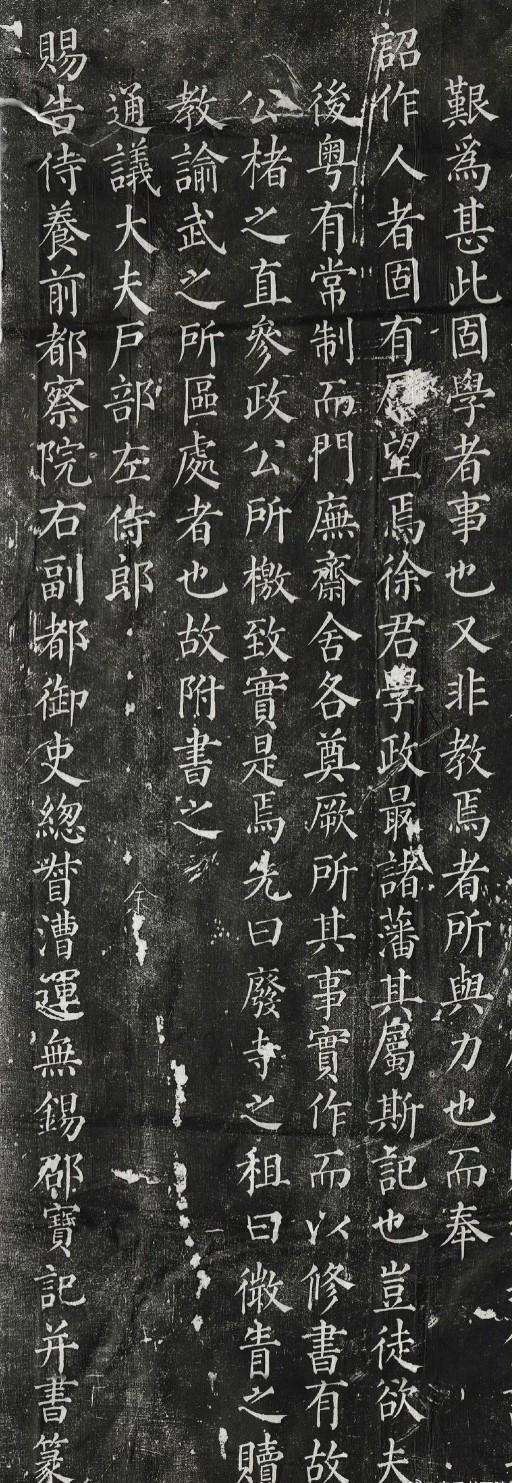 艱爲甚此固學者事也又非教焉者所與力也而奉
詔作人者固有厚望焉徐君學政最諸藩其屬斯記也豈徒欲夫
後粤有常制而門廡齋舍各奠厥所其事實作而以修書有故
公楮之直參政公所檄致實是焉先曰廢寺之租曰徵眚之贖
教諭武之所區處者也故附書之
通議大夫戶部左侍郎
賜告侍養前都察院右副都御史總督漕運無錫邵寶記并書篆